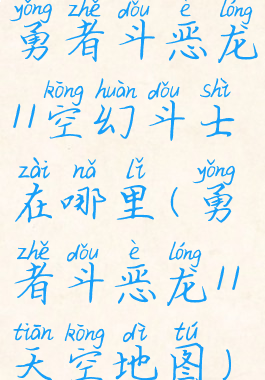 yǒng zhě dǒu è lóng
勇者斗恶龙
kōng huàn dǒu shì
11空幻斗士
zài nǎ lǐ yǒng
在哪里(勇
zhě dǒu è lóng
者斗恶龙11
tiān kōng dì tú
天空地图)